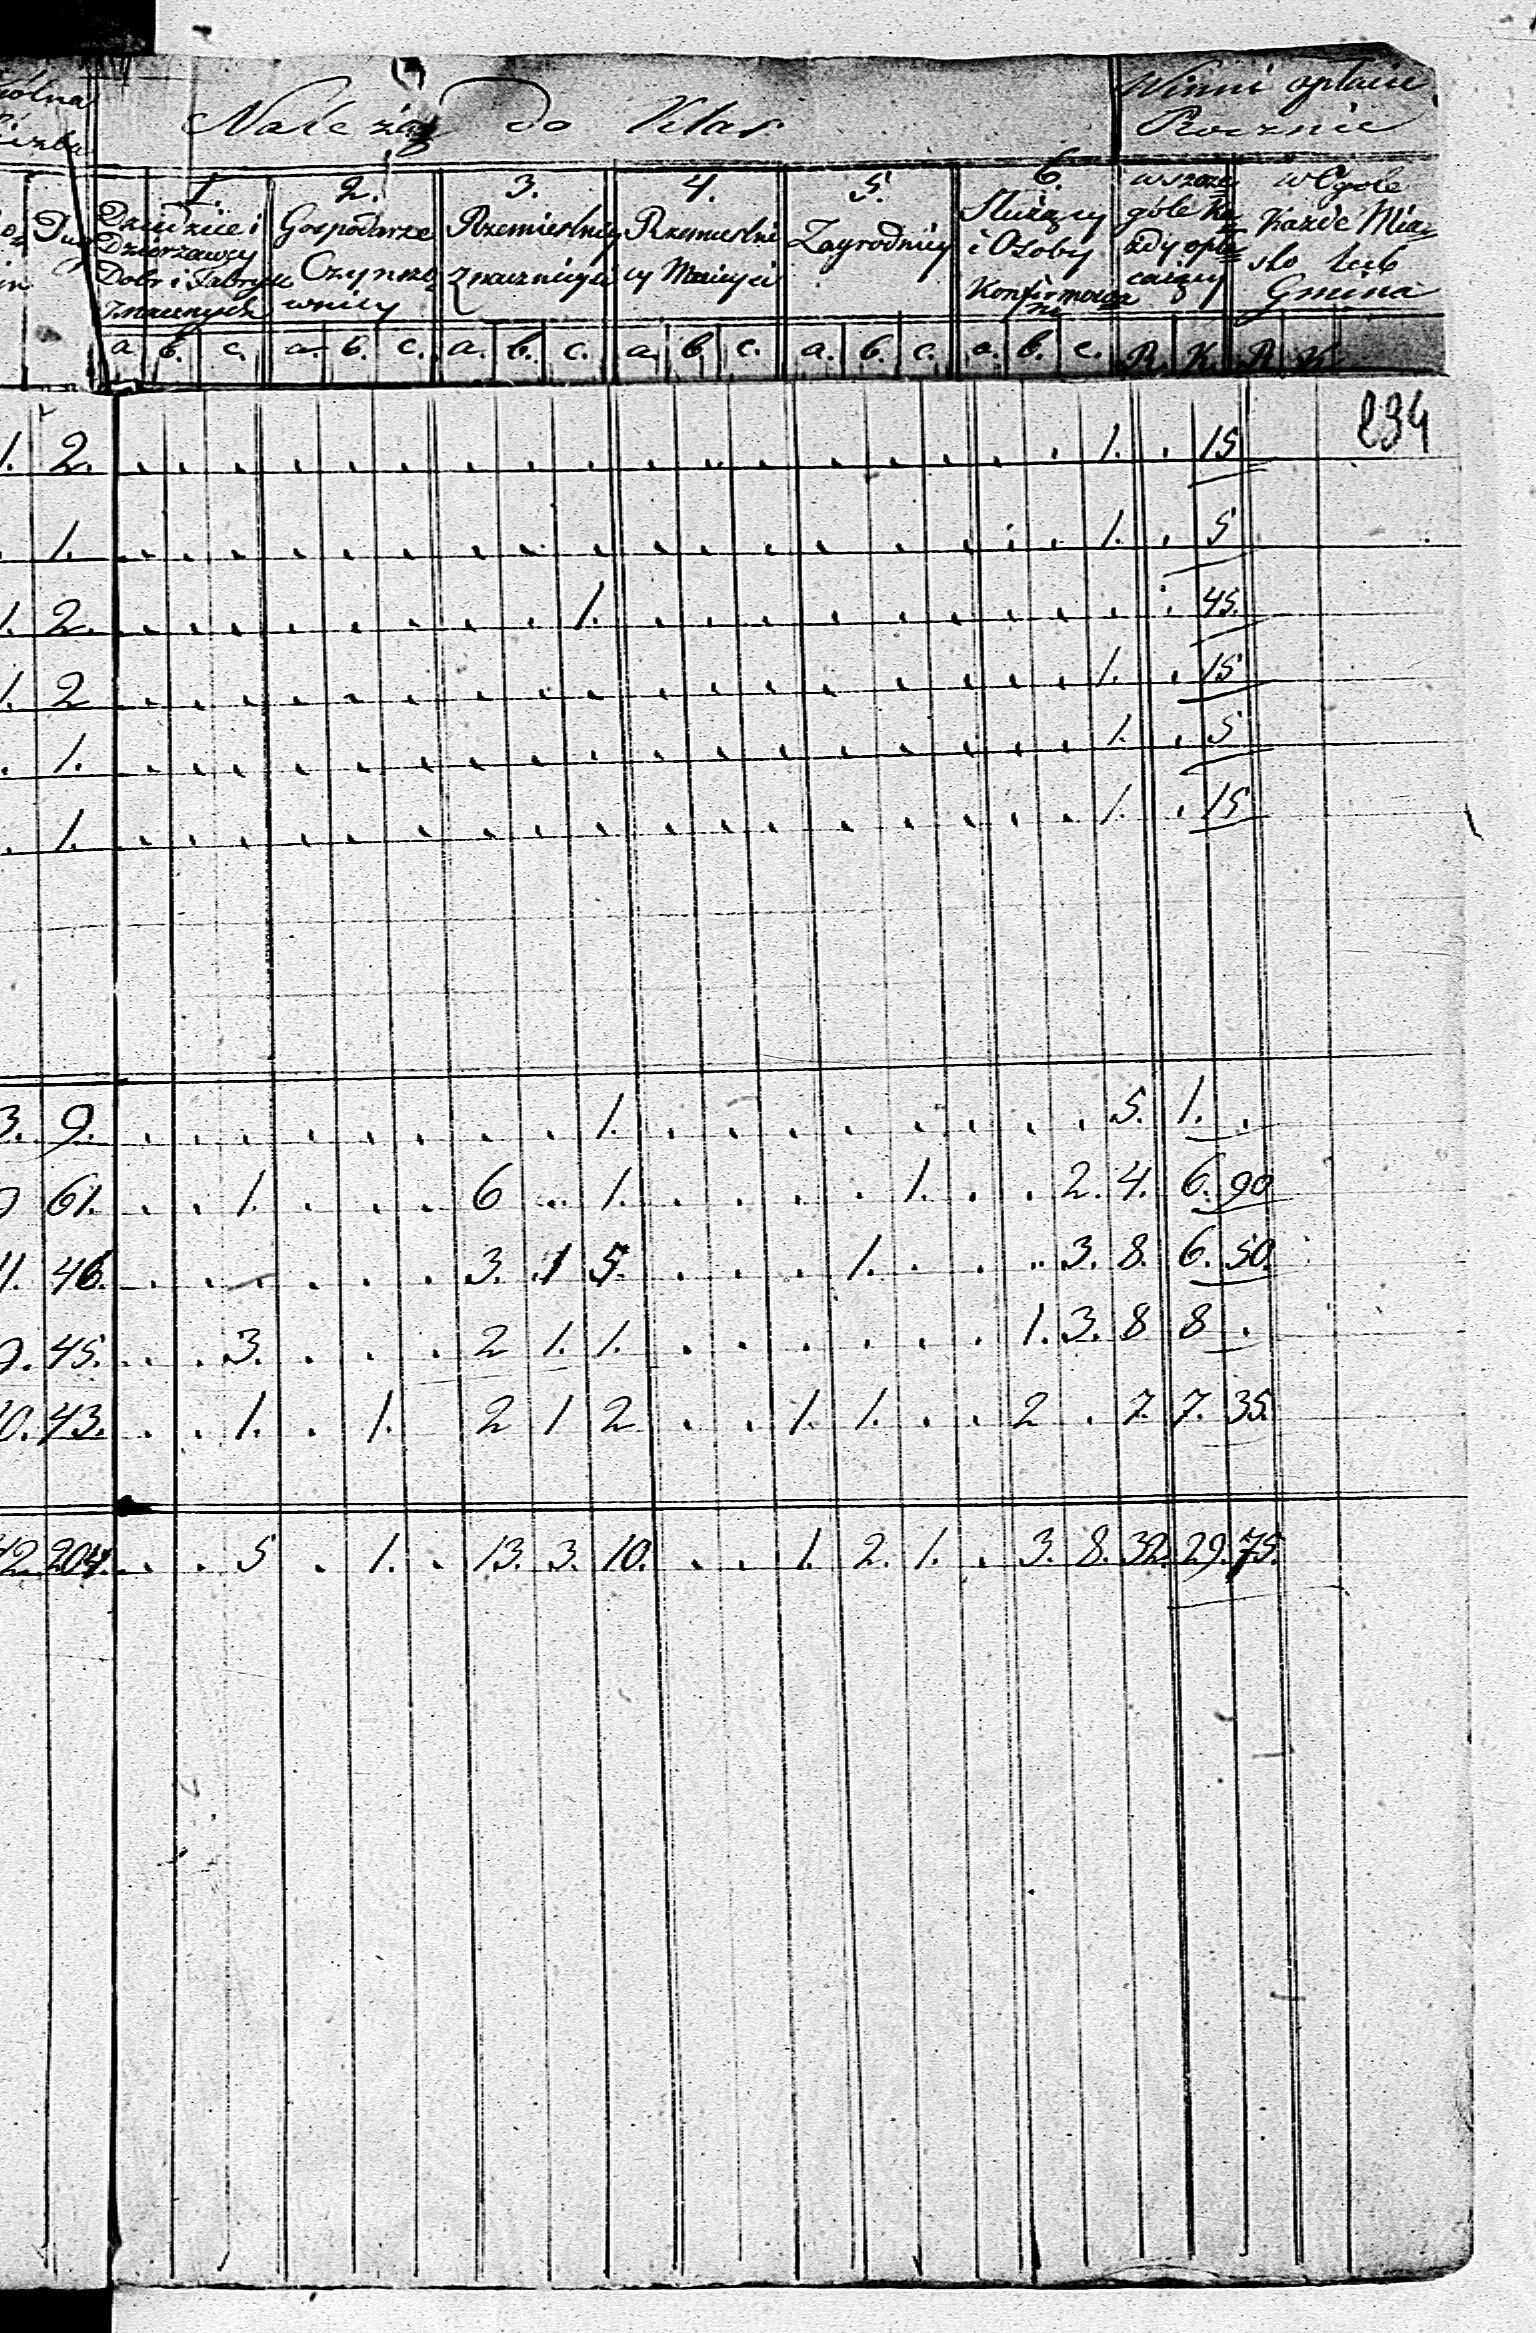 Należą do Klas
Winni opłacić
Rocznie
1. 2. 3. 4. 5. 6.
Dziedzice i
Dzierżawcy
Dobr i Fabryk
Znacznych
Gospodarze
Czynszo
wnicy
Rzemieslnicy
Znacznieysi
Rzemieslni
cy Mnieysi
Zagrodnicy
Służący
i Osoby
Konfirmowa
ni
w szcze
góle Ka
żdy opła
cający
w Ogóle
Każde Mia
sto lub
Gmina
a b. c. a. b. c. a. b. c. a. b. c. a. b. c. a. b. c. R. K. R. K.
234
1. 2. 1. 15
1. 1. 5
1. 2. 1. 45.
1. 2 1. 15
1. 1. 5
1. 1. 15
3. 9. 1. 5. 1.
61. 1. 6 1. 1. 2. 4. 6. 90
11. 46. 3. 1 5. 1. 3. 8. 6. 50.
45. 3. 2 1. 1. 1. 3. 8 8
10. 43. 1. 1. 2 1 2 1. 1. 2 7. 7. 35.
42. 204. 5 1. 13. 3. 10. 1. 2. 1. 3. 8. 32. 29. 75.